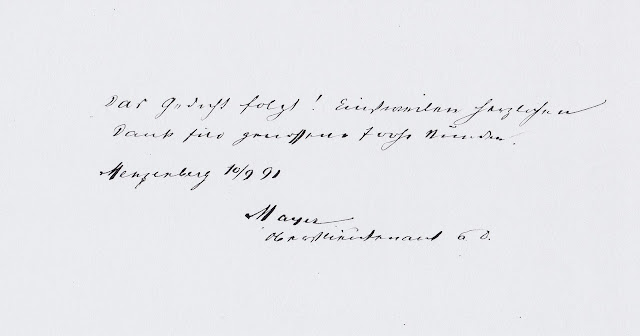 Das Gedicht folgt! Einstweilen herzlichen
Dank für genossene frohe Stunden.
Menzenberg 10/9 91
Mayer
Oberstlieutenant a. D.